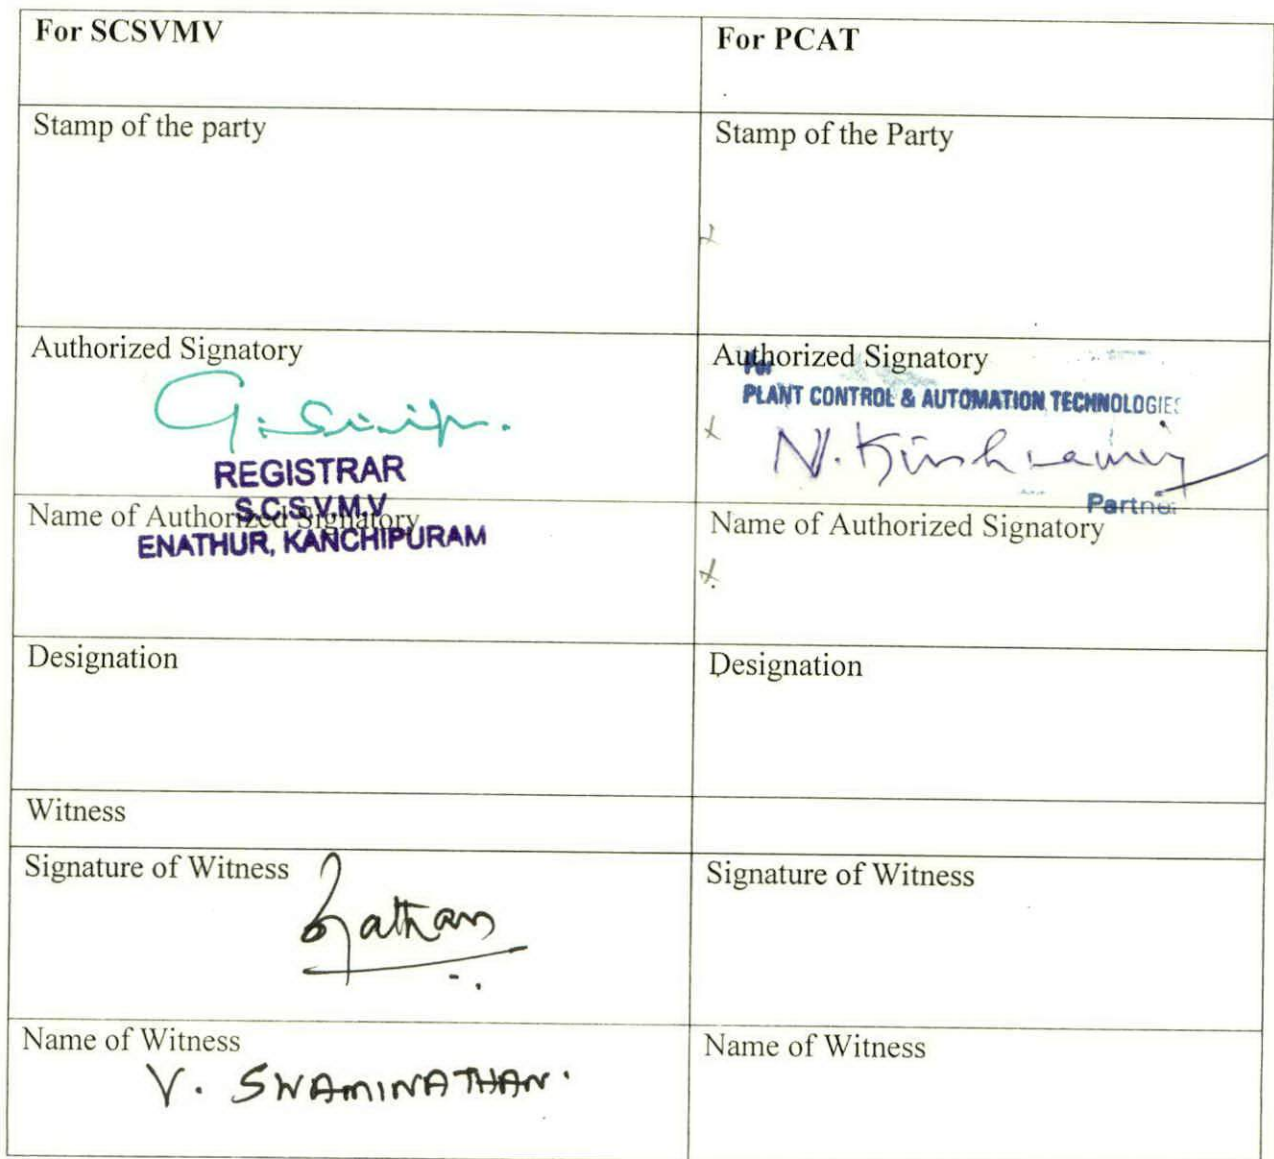 For SCSVMV
For PCAT
Stamp of the party
Stamp of the Party
Authorized Signatory
REGISTRAR
S.C.S.V.M.V
ENATHUR, KANCHIPURAM
Authorized Signatory
For
PLANT CONTROL & AUTOMATION TECHNOLOGIES
Partner
Name of Authorized Signatory
Name of Authorized Signatory
Designation
Designation
Witness
Signature of Witness
Signature of Witness
Name of Witness
V. SWAMINATHAN.
Name of Witness